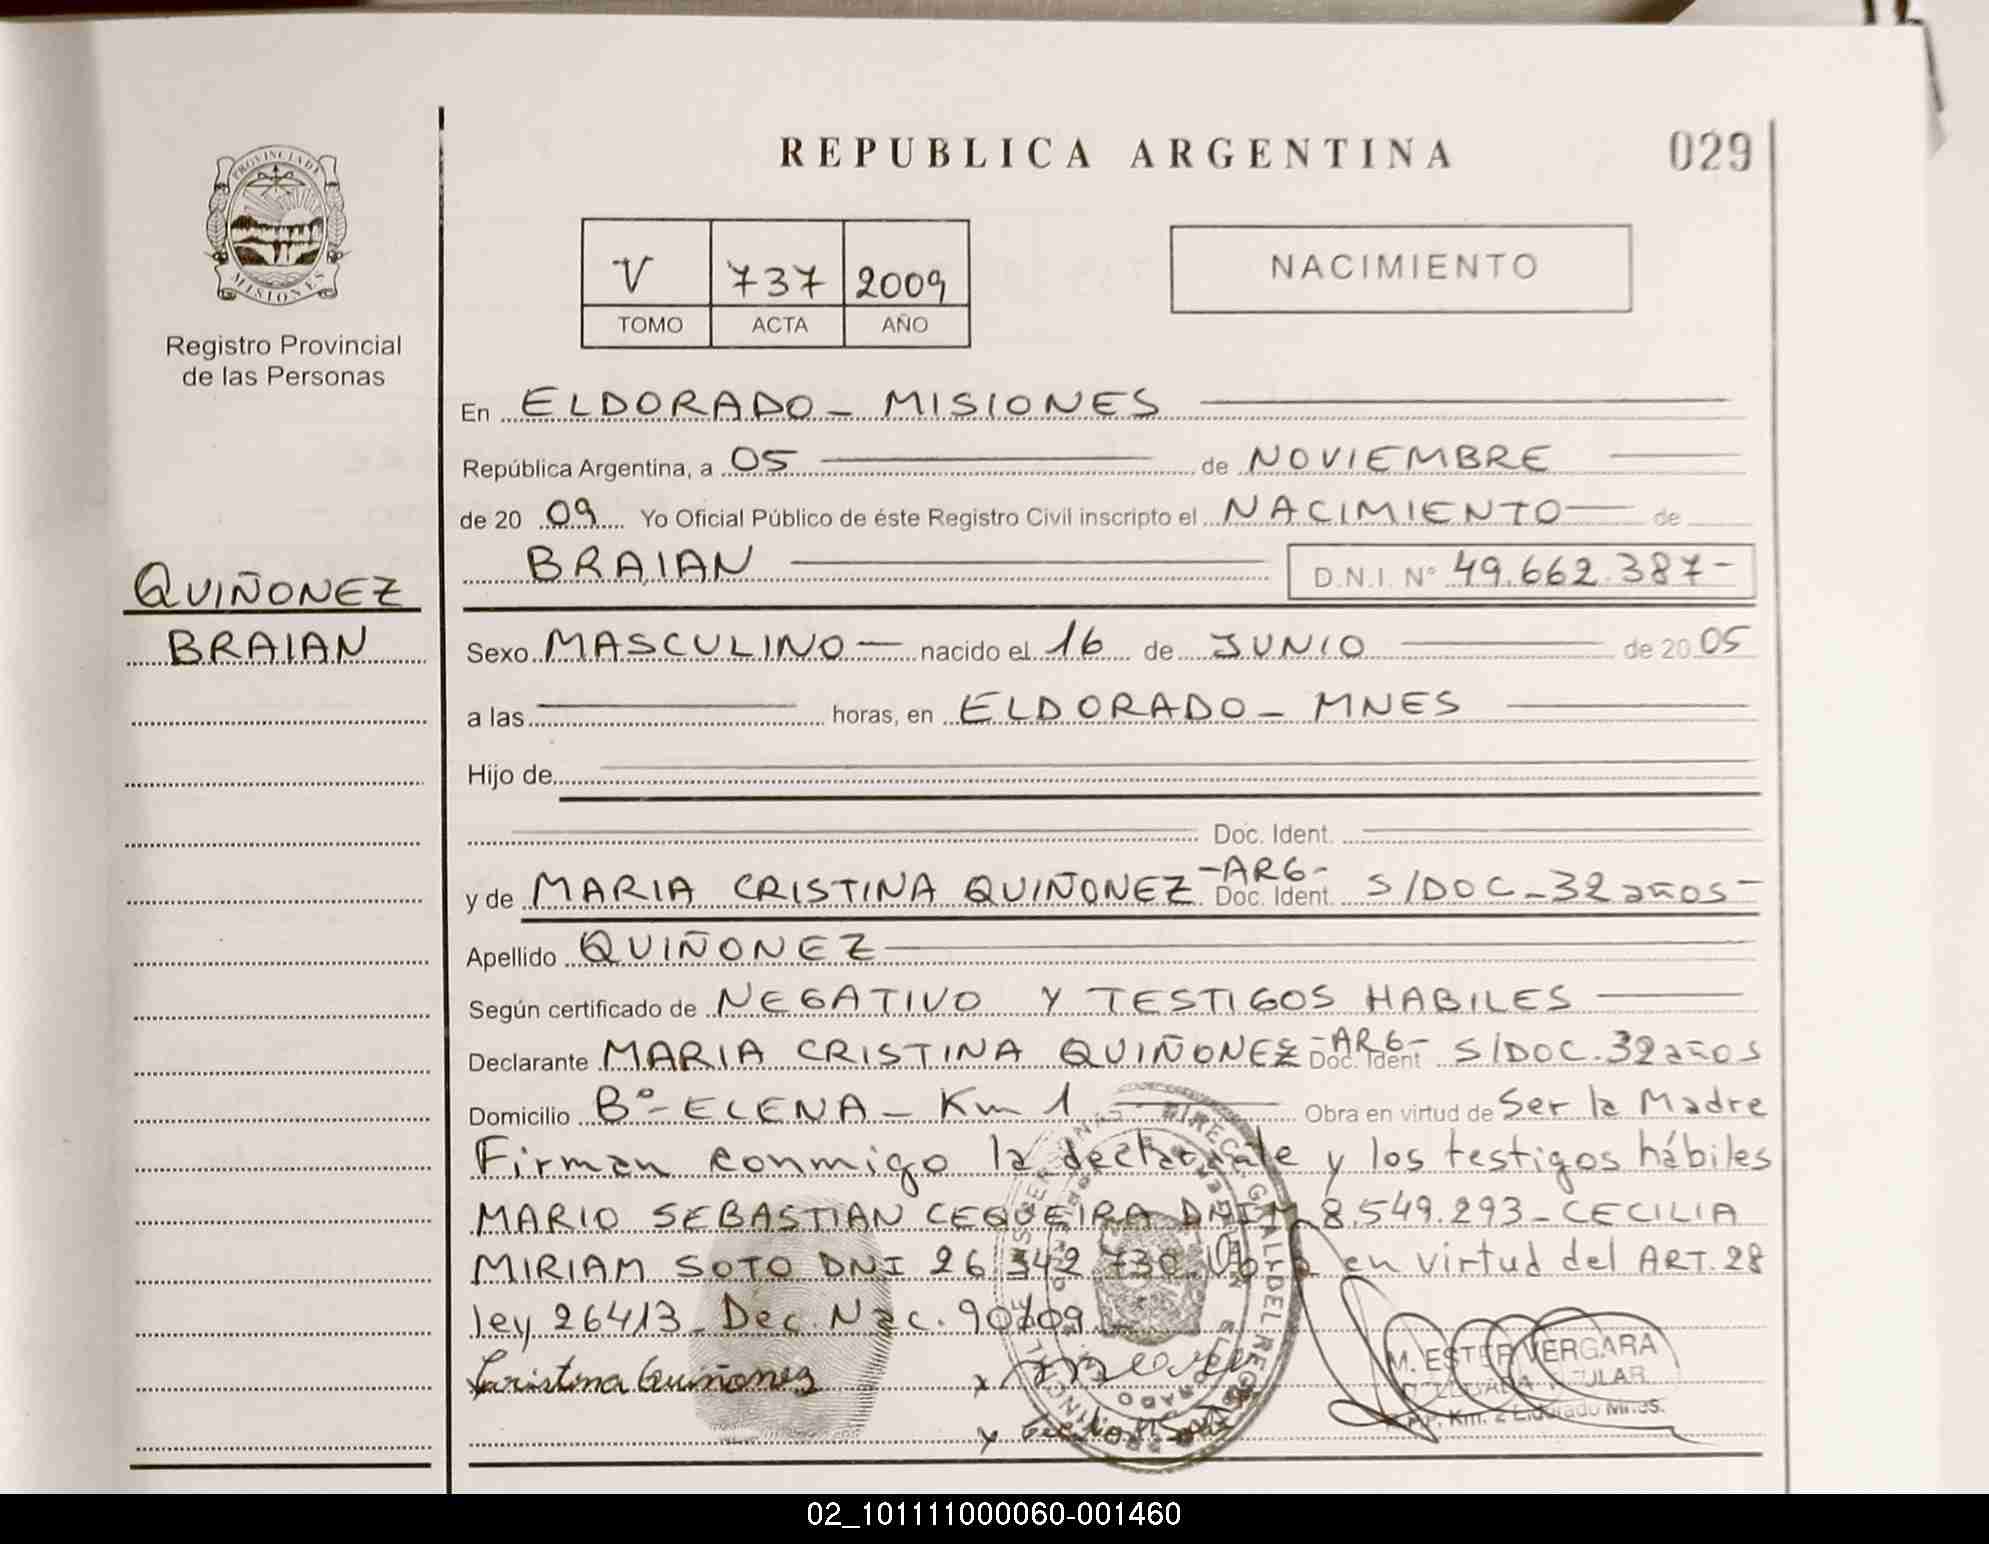 REPUBLICA ARGENTINA
029
PROVINCIA DE
MISIONES
Registro Provincial
de las Personas
V 737 2009
TOMO ACTA AÑO
NACIMIENTO
En ELDORADO - MISIONES
República Argentina, a 05 de NOVIEMBRE
de 20 09 Yo Oficial Público de éste Registro Civil inscripto el NACIMIENTO de
BRAIAN D.N.I. Nº 49.662.387-
QUIÑONEZ
BRAIAN
Sexo MASCULINO nacido el 16 de JUNIO de 20 05
a las horas, en ELDORADO - MNES
Hijo de
Doc. Ident.
y de MARIA CRISTINA QUIÑONEZ -ARG- Doc. Ident. S/DOC - 32 años -
Apellido QUIÑONEZ
Según certificado de NEGATIVO Y TESTIGOS HABILES
Declarante MARIA CRISTINA QUIÑONEZ -ARG- Doc. Ident S/DOC. 32 años
Domicilio Bº- ELENA - Km 1 Obra en virtud de Ser la Madre
Firman conmigo la declarante y los testigos hábiles
MARIO SEBASTIAN CEQUEIRA DNI 8.549.293 - CECILIA
MIRIAM SOTO DNI 26 342 730 en virtud del ART. 28
ley 26413 - Dec. Nac. 90/09
Cristina Quiñones
M. ESTER VERGARA
DELEGADA TITULAR
R.P.P. Km. 2 Eldorado Mnes.
02_101111000060-001460